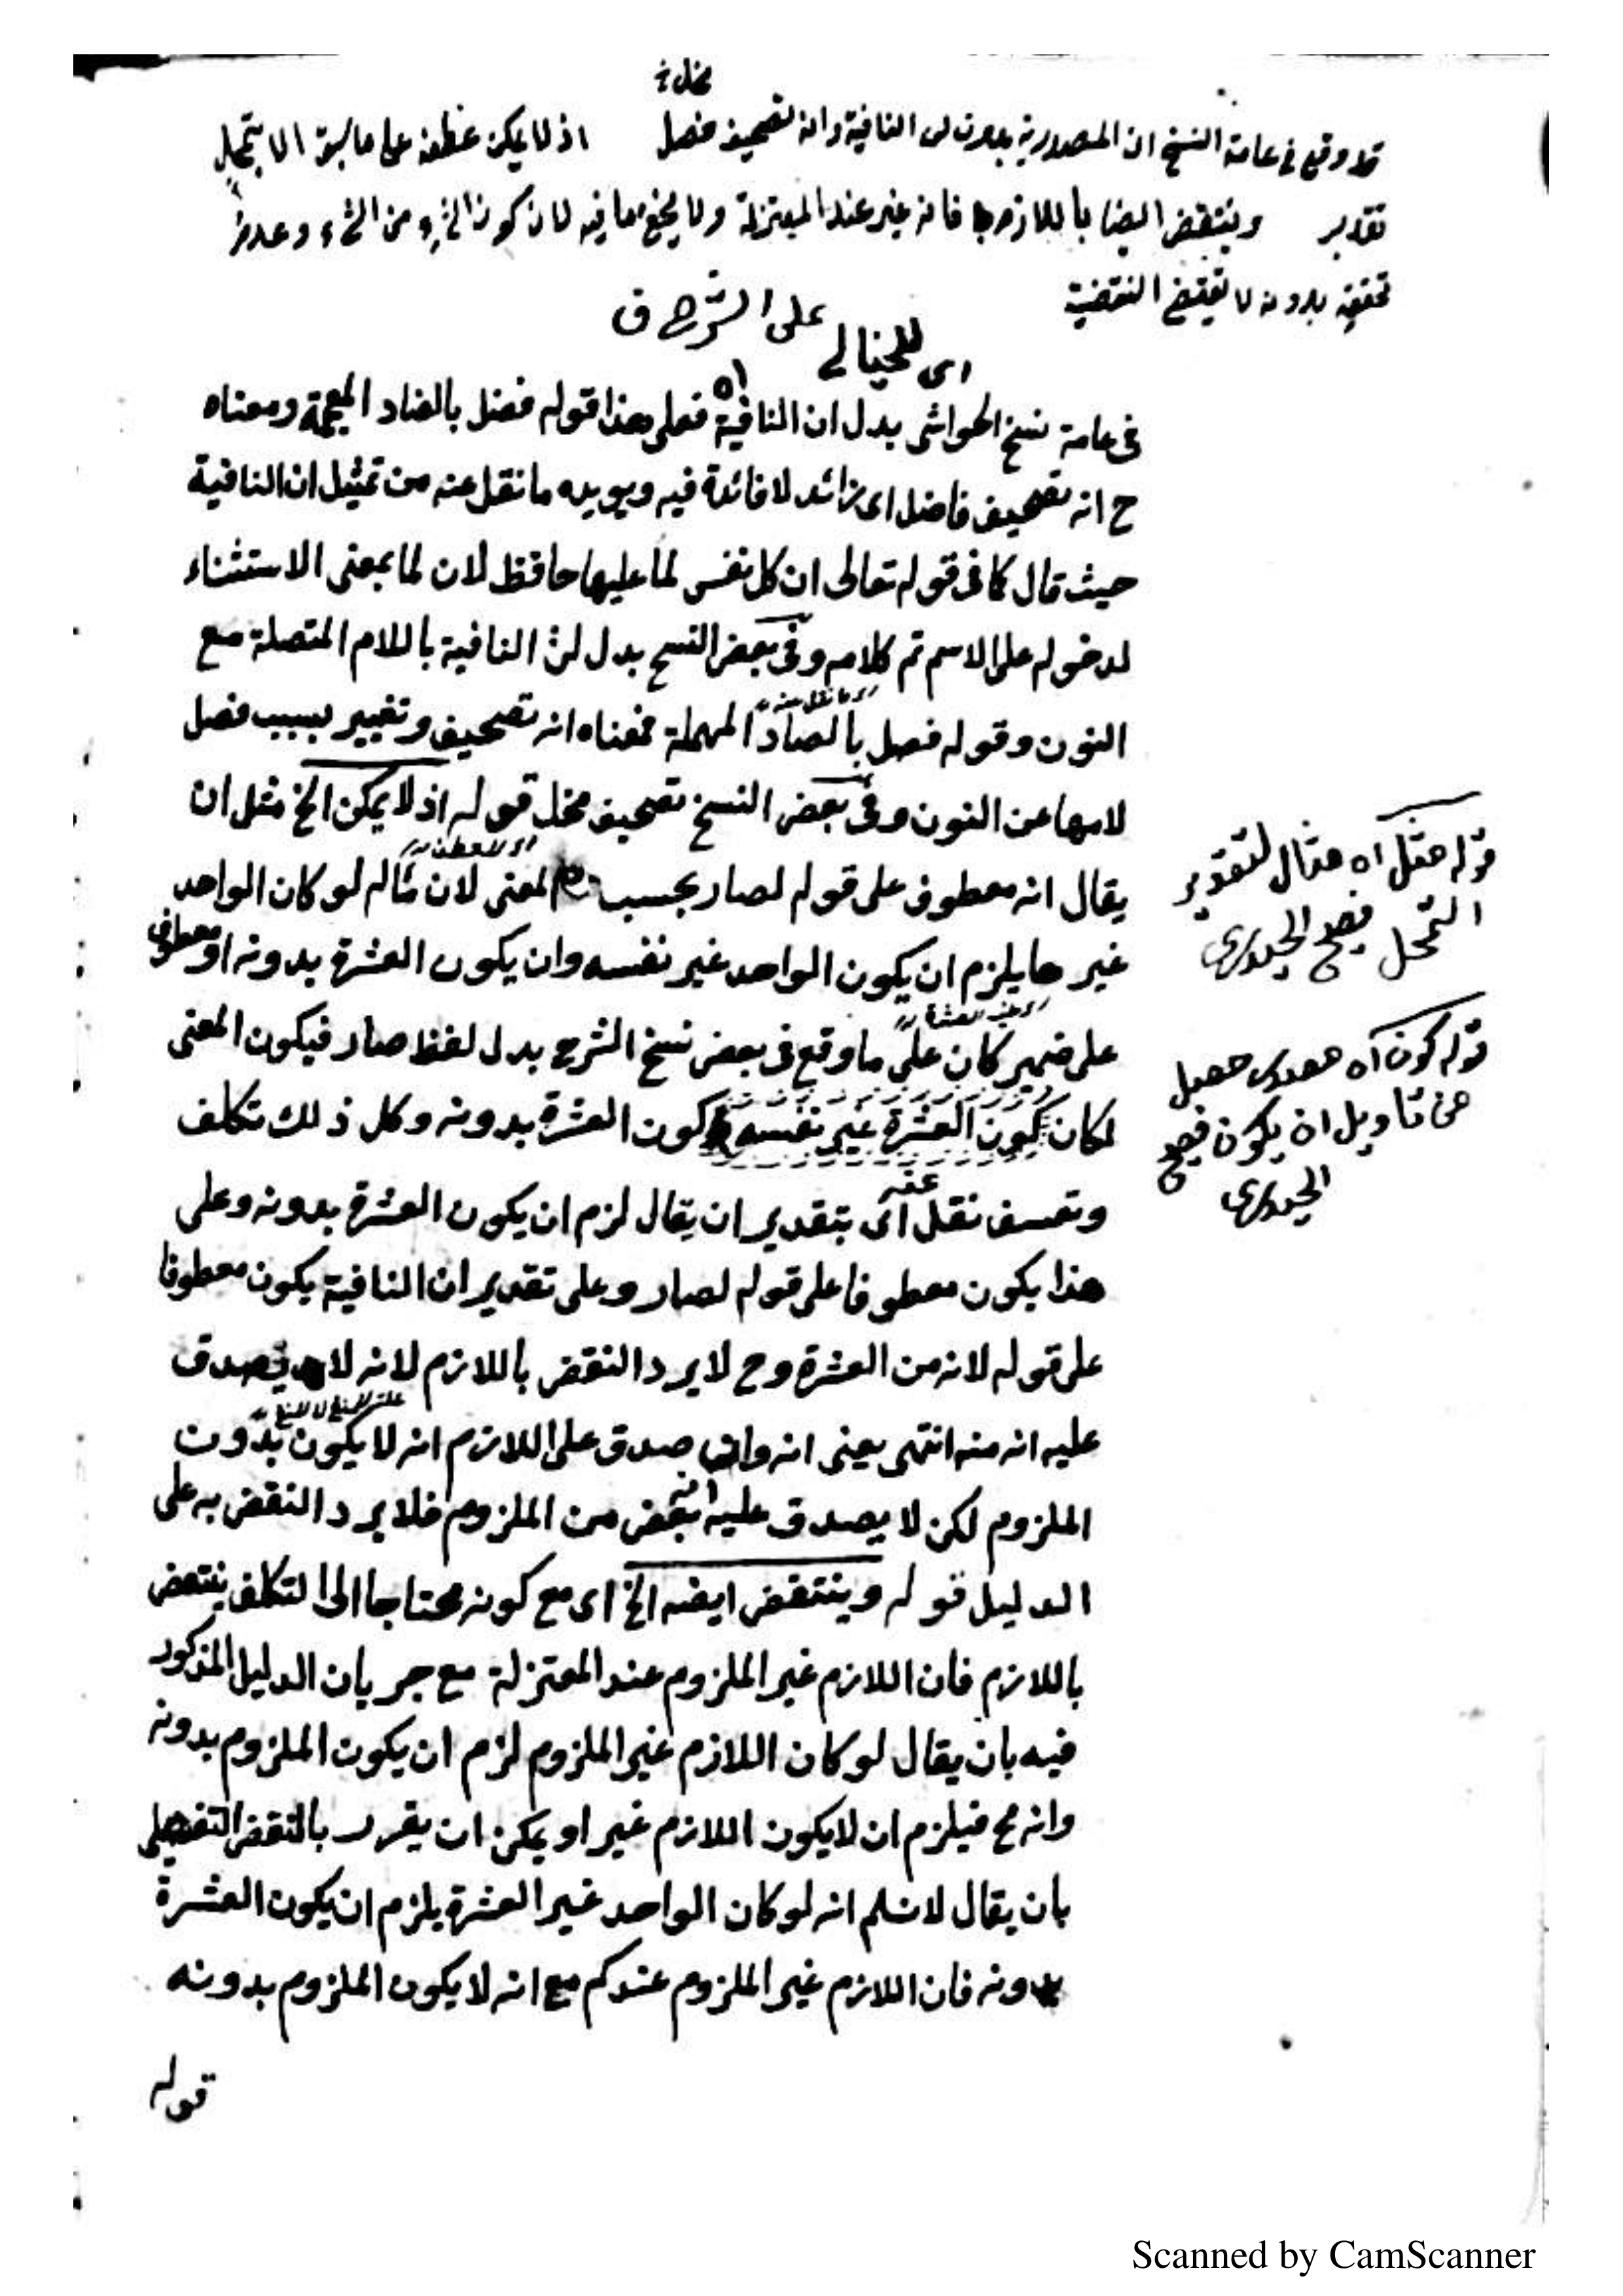 مخل خ
قد وقع في عامة النسخ ان المصدرية بدون لن النافية وانه تصحيف فصل اذ لا يمكن عطفه على ما سبق الا بتمحل
تقدير وينتقض ايضا باللازم فانه غير عند المعتزلة ولا يخفى ما فيه لان كون الجزء من الشيء وعدم
تحققه بدونه لا يقتضي النقضية
اى للخيالى على الشرح ق
فى عامة نسخ الحواشى بدل ان النافية اه فعلى هذا قوله فضل بالضاد المعجمة ومعناه
ح انه تصحيف فاضل اى زائد لا فائدة فيه ويويده ما نقل عنه من تمثيل ان النافية
حيث قال كما فى قوله تعالى ان كل نفس لما عليها حافظ لان لما بمعنى الاستثناء
لدخوله على الاسم تم كلامه وفى بعض النسخ بدل لن النافية باللام المتصلة مع
النون وقوله فصل بالصاد المهملة فمعناه انه تصحيف وتغيير بسبب فصل
لامها عن النون وفى بعض النسخ تصحيف مخل قوله اذ لا يمكن الخ مثل ان
يقال انه معطوف على قوله لصار بحسب المعنى لان مآله لو كان الواحد
غيرها يلزم ان يكون الواحد غير نفسه وان يكون العشرة بدونه او معطوف
على ضمير كان على ما وقع فى بعض نسخ الشرح بدل لفظ صار فيكون المعنى
لكان كون العشرة غير نفسه كون العشرة بدونه وكل ذلك تكلف
وتعسف نقل عنه اى بتقدير ان يقال لزم ان يكون العشرة بدونه وعلى
هذا يكون معطوفا على قوله لصار وعلى تقدير ان النافية يكون معطوفا
على قوله لانه من العشرة وح لا يرد النقض باللازم لانه لا يصدق
عليه انه منه انتهى يعنى انه وان صدق على اللازم انه لا يكون بدون
الملزوم لكن لا يصدق عليه انه بعض من الملزوم فلا يرد النقض به على
الدليل قوله وينتقض ايضه الخ اى مع كونه محتاجا الى التكلف ينتقض
باللازم فان اللازم غير الملزوم عند المعتزلة مع جريان الدليل المذكور
فيه بان يقال لو كان اللازم غير الملزوم لزم ان يكون الملزوم بدونه
وانه مح فيلزم ان لا يكون اللازم غير او يمكن ان يقرر بالنقض التفصيلى
بان يقال لا نسلم انه لو كان الواحد غير العشرة يلزم ان يكون العشرة
بدونه فان اللازم غير الملزوم عندكم مع انه لا يكون الملزوم بدونه
قوله
قوله مثل اه مثال لتقدير
التمحل
قوله كون اه
من تاويل ان يكون
Scanned by CamScanner